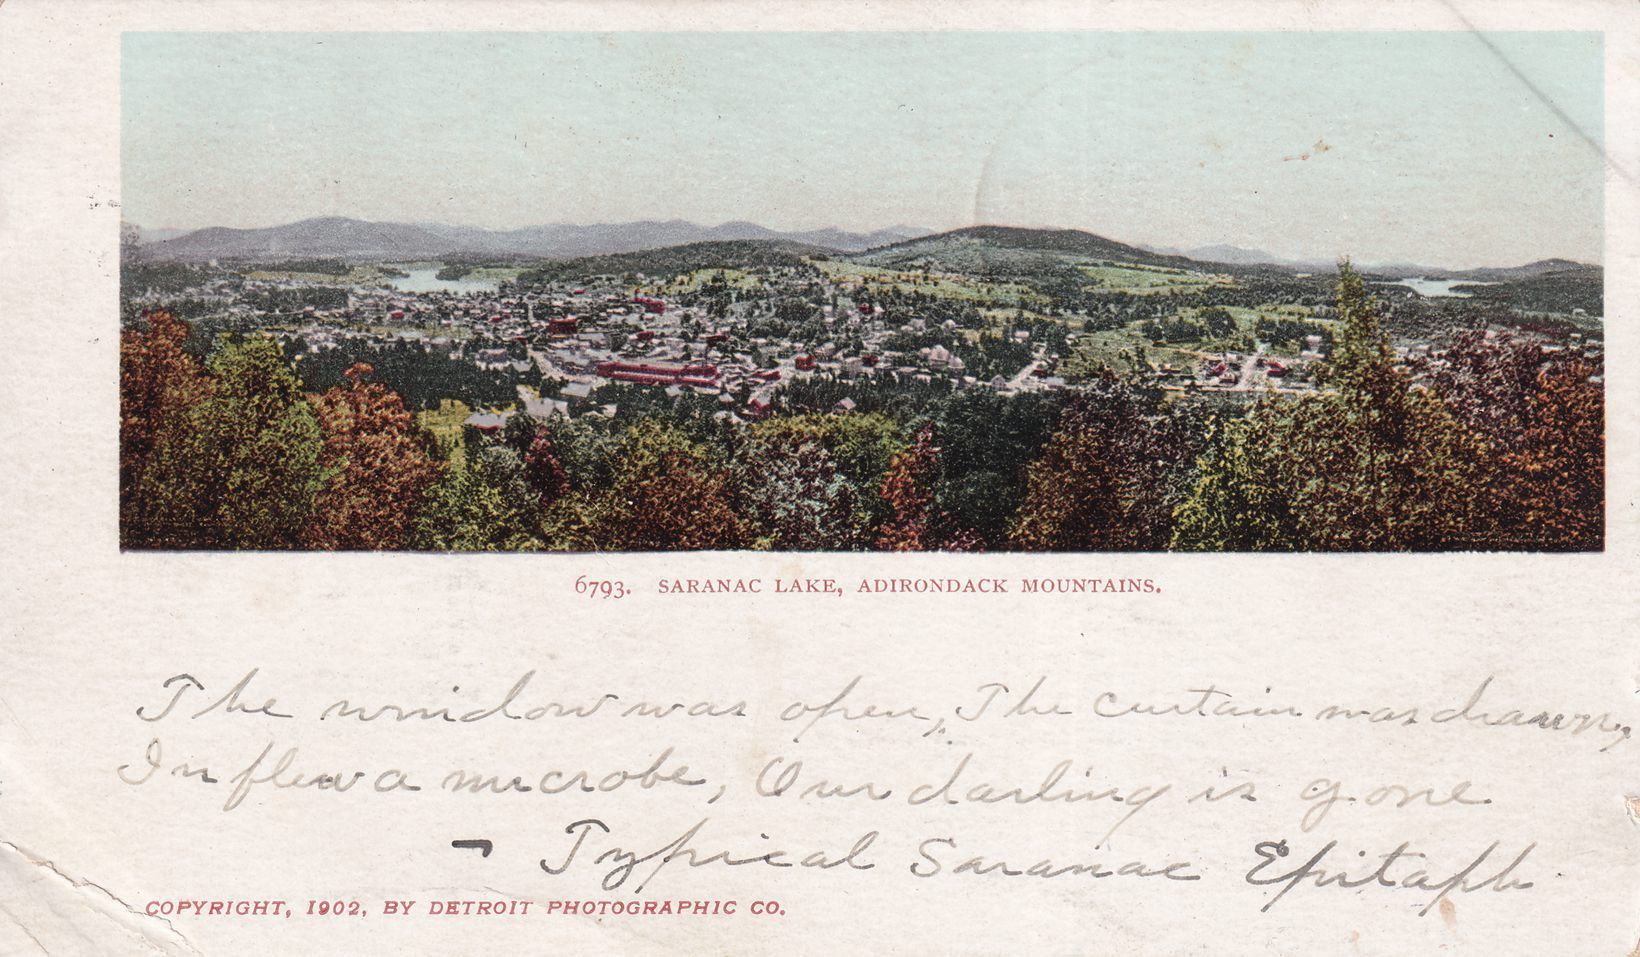 6793. SARANAC LAKE, ADIRONDACK MOUNTAINS.
The window was open, The curtain was drawn,
In flew a microbe, Our darling is gone
- Typical Saranac Epitaph.
COPYRIGHT, 1902, BY DETROIT PHOTOGRAPHIC CO.